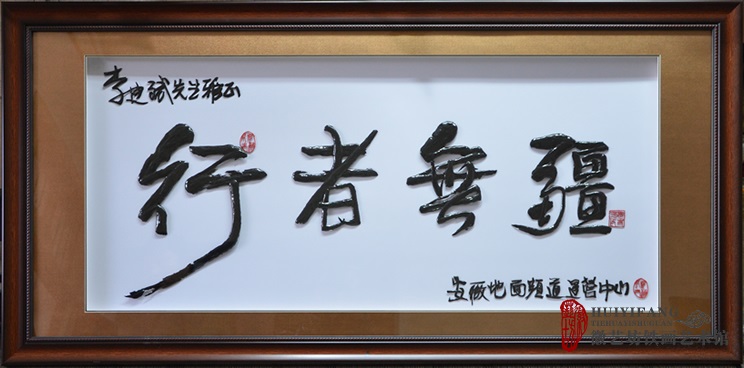 李迪斌先生雅正
行者無疆
安徽地面頻道運營中心
HUIYIFANG
徽艺坊铁画艺术馆